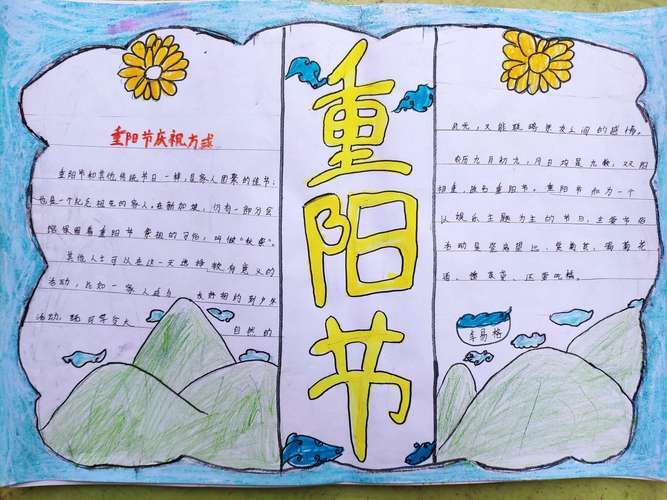 重阳节庆祝方式
重阳节和其他传统节日一样,是家人团聚的佳节;
也是一个纪念祖先的家人。在新加坡,仍有一部分家
庭保留着重阳节祭祖的习俗,叫做“秋祭”。
其他人士可以在这一天选择较有意义的
活动,比如一家人或与友好相约到户外
活动,既可享受大自然的
重
阳
节
风光,又能联络亲友之间的感情。
农历九月初九,月日均是九数,双阳
相重,故名重阳节。重阳节和为一个
以娱乐主题为主的节日,主要节俗
活动是登高望远、赏菊花、喝菊花
酒、插茱萸、还要吃糕。
李易格